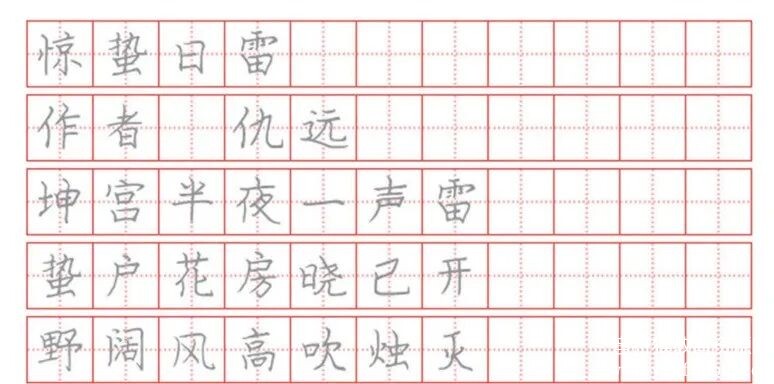 惊蛰日雷
作者 仇远
坤宫半夜一声雷
蛰户花房晓已开
野阔风高吹烛灭